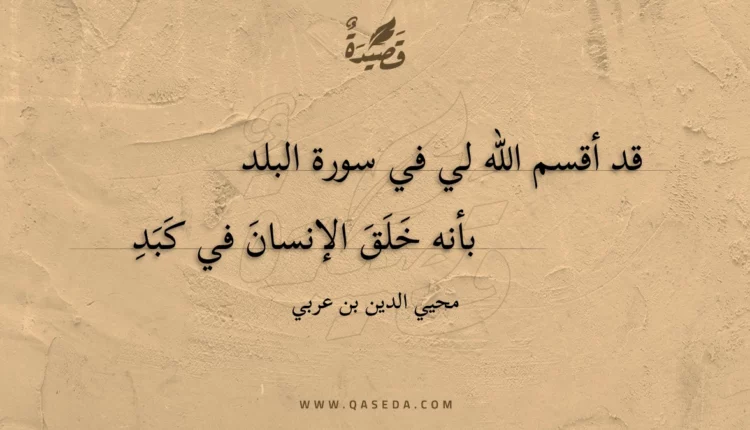 قَصِيْدَةٌ
قد أقسم الله لي في سورة البلد
بأنه خَلَقَ الإنسانَ في كَبَدِ
محيي الدين بن عربي
WWW.QASEDA.COM